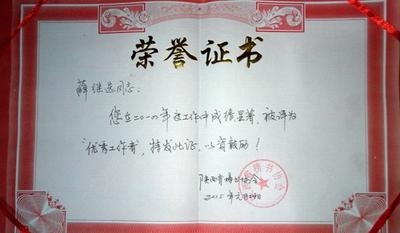 荣誉证书
薛继运同志：
您在二〇一四年度工作中成绩显著，被评为
“优秀工作者，特发此证，以资鼓励！
陕西省楷书协会